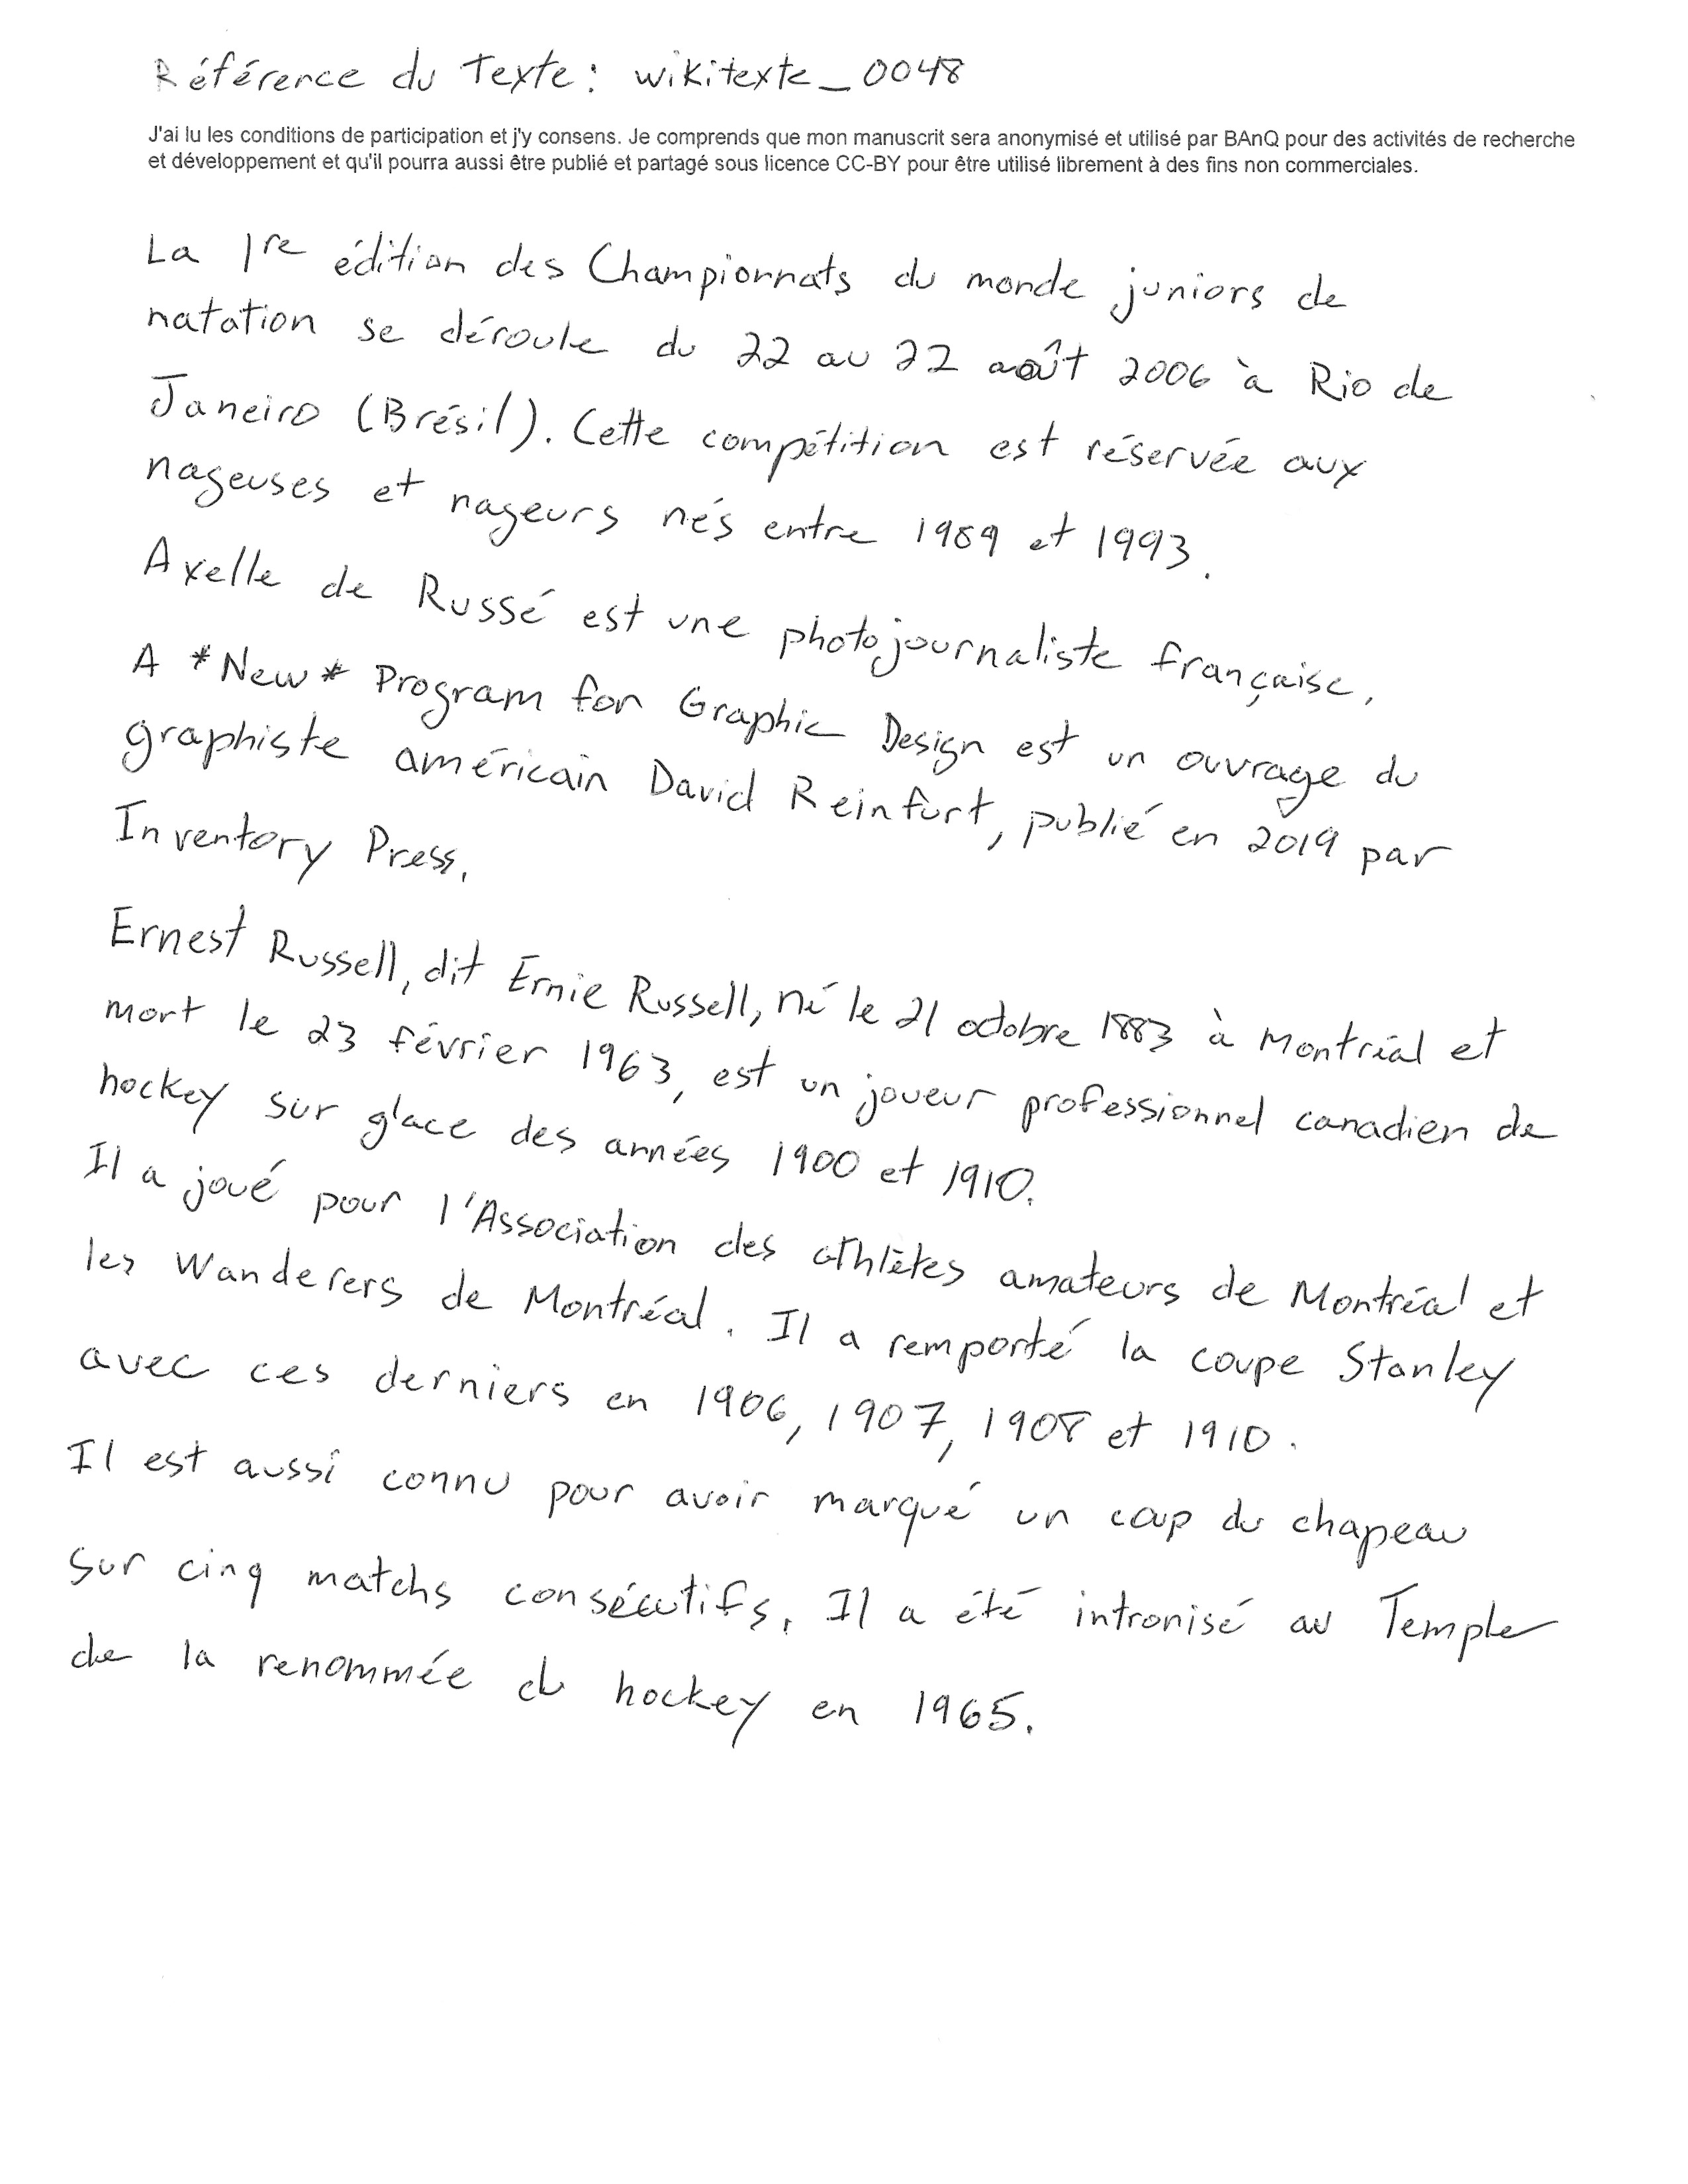 Référence du Texte : wikitexte_0048
J'ai lu les conditions de participation et j'y consens. Je comprends que mon manuscrit sera anonymisé et utilisé par BAnQ pour des activités de recherche
et développement et qu'il pourra aussi être publié et partagé sous licence CC-BY pour être utilisé librement à des fins non commerciales.
La 1re édition des Championnats du monde juniors de
natation se déroule du 22 au 22 août 2006 à Rio de
Janeiro (Brésil). Cette compétition est réservée aux
nageuses et nageurs nés entre 1989 et 1993.
Axelle de Russé est une photojournaliste française.
A *New* Program for Graphic Design est un ouvrage du
graphiste américain David Reinfurt, publié en 2019 par
Inventory Press.
Ernest Russell, dit Ernie Russell, né le 21 octobre 1883 à Montréal et
mort le 23 février 1963, est un joueur professionnel canadien de
hockey sur glace des années 1900 et 1910.
Il a joué pour l'Association des athlètes amateurs de Montréal et
les Wanderers de Montréal. Il a remporté la coupe Stanley
avec ces derniers en 1906, 1907, 1908 et 1910.
Il est aussi connu pour avoir marqué un coup du chapeau
sur cinq matchs consécutifs. Il a été intronisé au Temple
de la renommée du hockey en 1965.